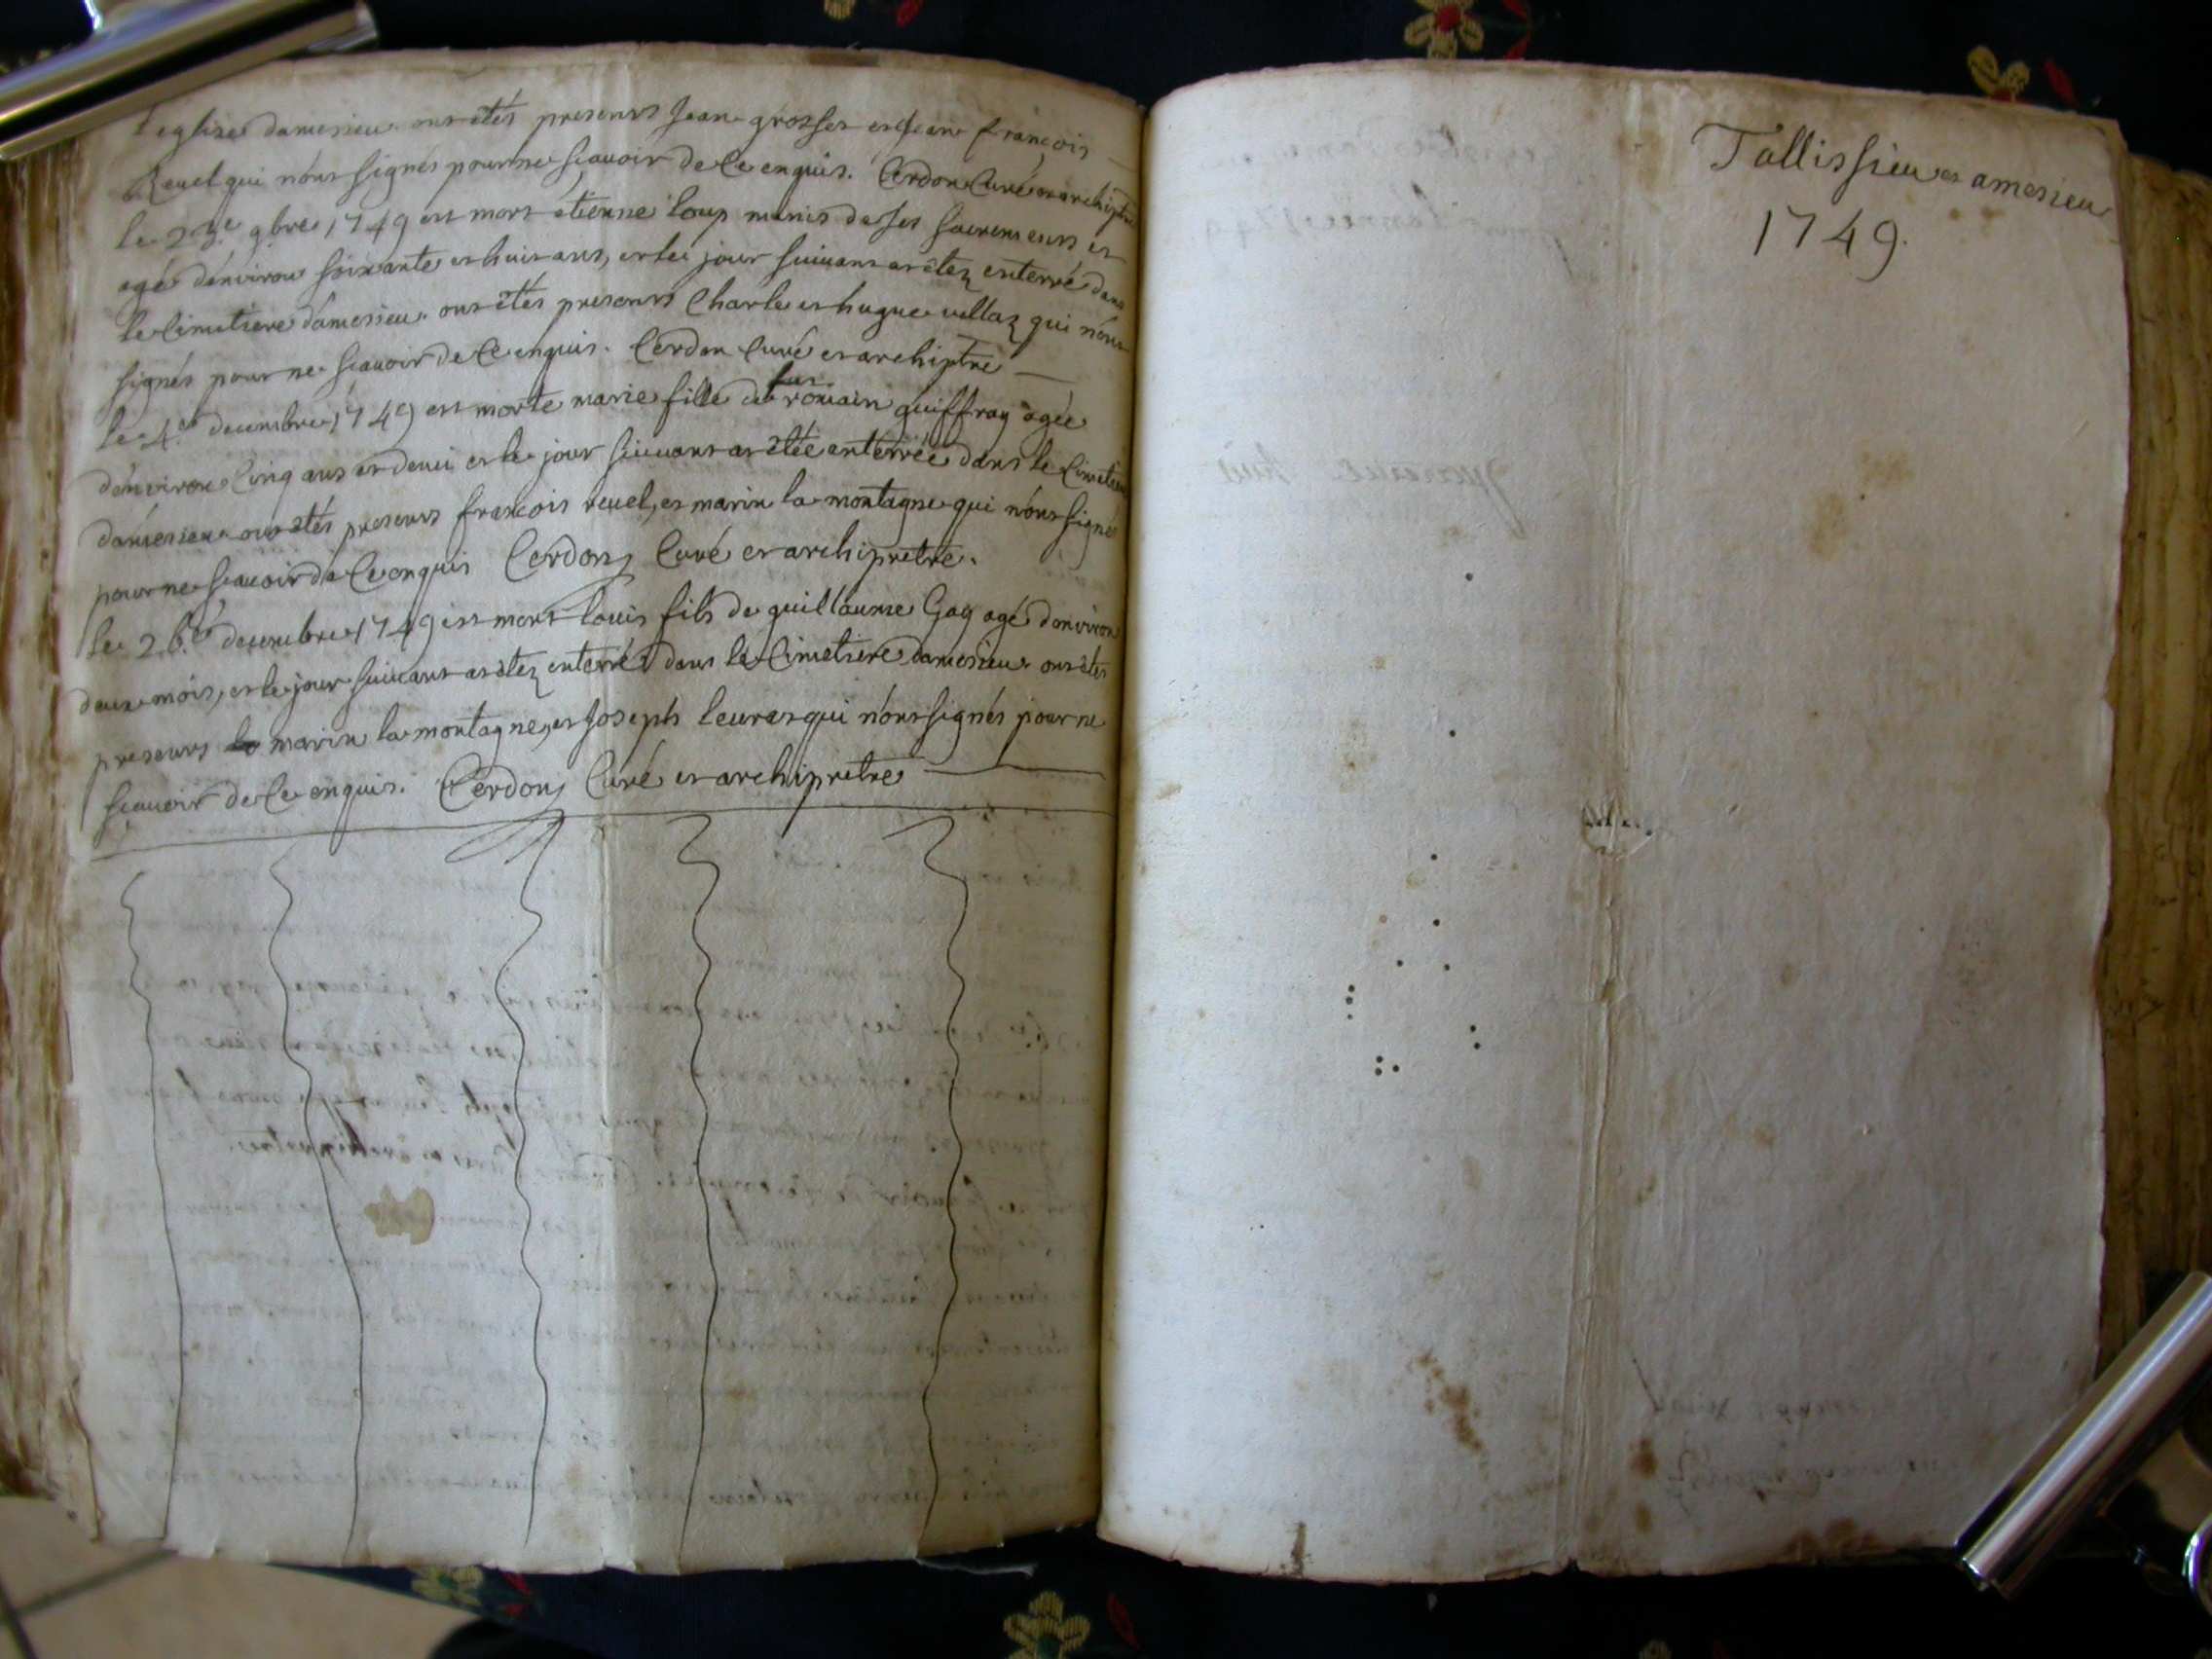 l'eglise damesieu. ont etés presents Jean grosset et jean françois
Revel qui n'ont signés pour ne scavoir de ce enquis. Cerdon Curé et archiptre
le 23.e 9bre 1749 est mort étienne loup munis de ses sacremens et
agé d'environ soixante et huit ans, et le jour suivant at étez enterré dans
le Cimetiere d'amesieu. ont étés presents Charle et hugue vullaz qui n'ont
signés pour ne scavoir de ce enquis. Cerdon Curé et archiptre
le 4.e decembre 1749 est morte marie fille de feu romain guiffray agée
d'environ Cinq ans et demi et le jour suivant at étée enterrée dans le Cimetiere
d'amesieu ont étés presents françois revel, et marin la montagne qui n'ont signé
pour ne scavoir de ce enquis Cerdon, Curé et archipretre.
le 26.e decembre 1749 est mort louis fils de guillaume Gay agé d'environ
deux mois, et le jour suivant at étez enterré dans le Cimetiere damesieu. ont étés
presents marin la montagne, et Joseph leurat qui n'ont signés pour ne
scavoir de ce enquis. Cerdon, Curé et archipretre
Tallissieu et amesieu
1749.